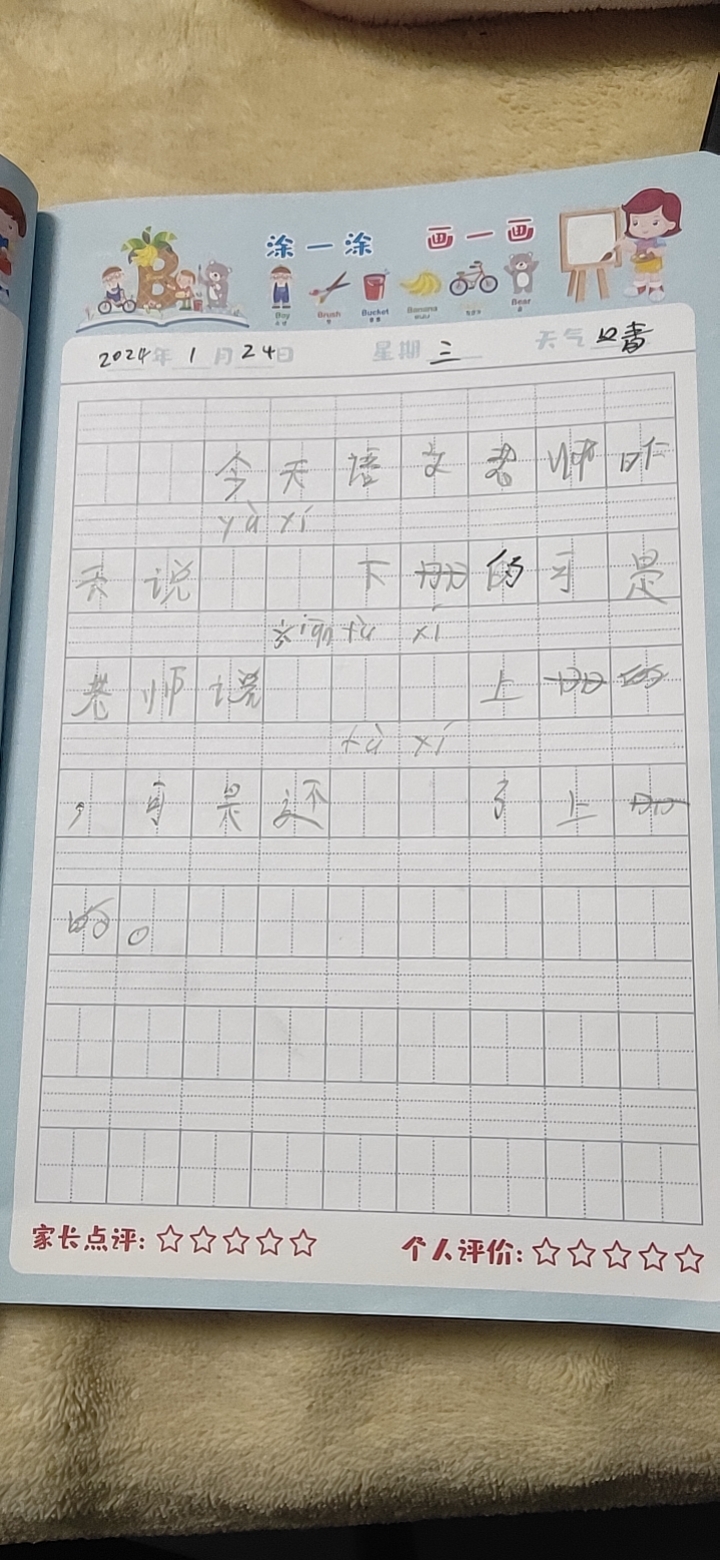 涂一涂 画一画
B
Boy Brush Bucket Banana Bear
2024年1月24日 星期三 天气
今天语文老师昨
yà xí
天说 下册的可是
tà xí
老师说 上册的
tà xí
,可是还 了上册
的。
家长点评: 个人评价: